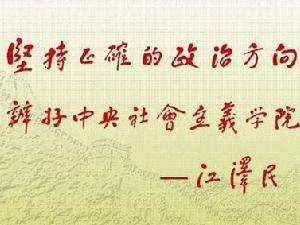 堅持正確的政治方向
辦好中央社會主義学院
—江澤民